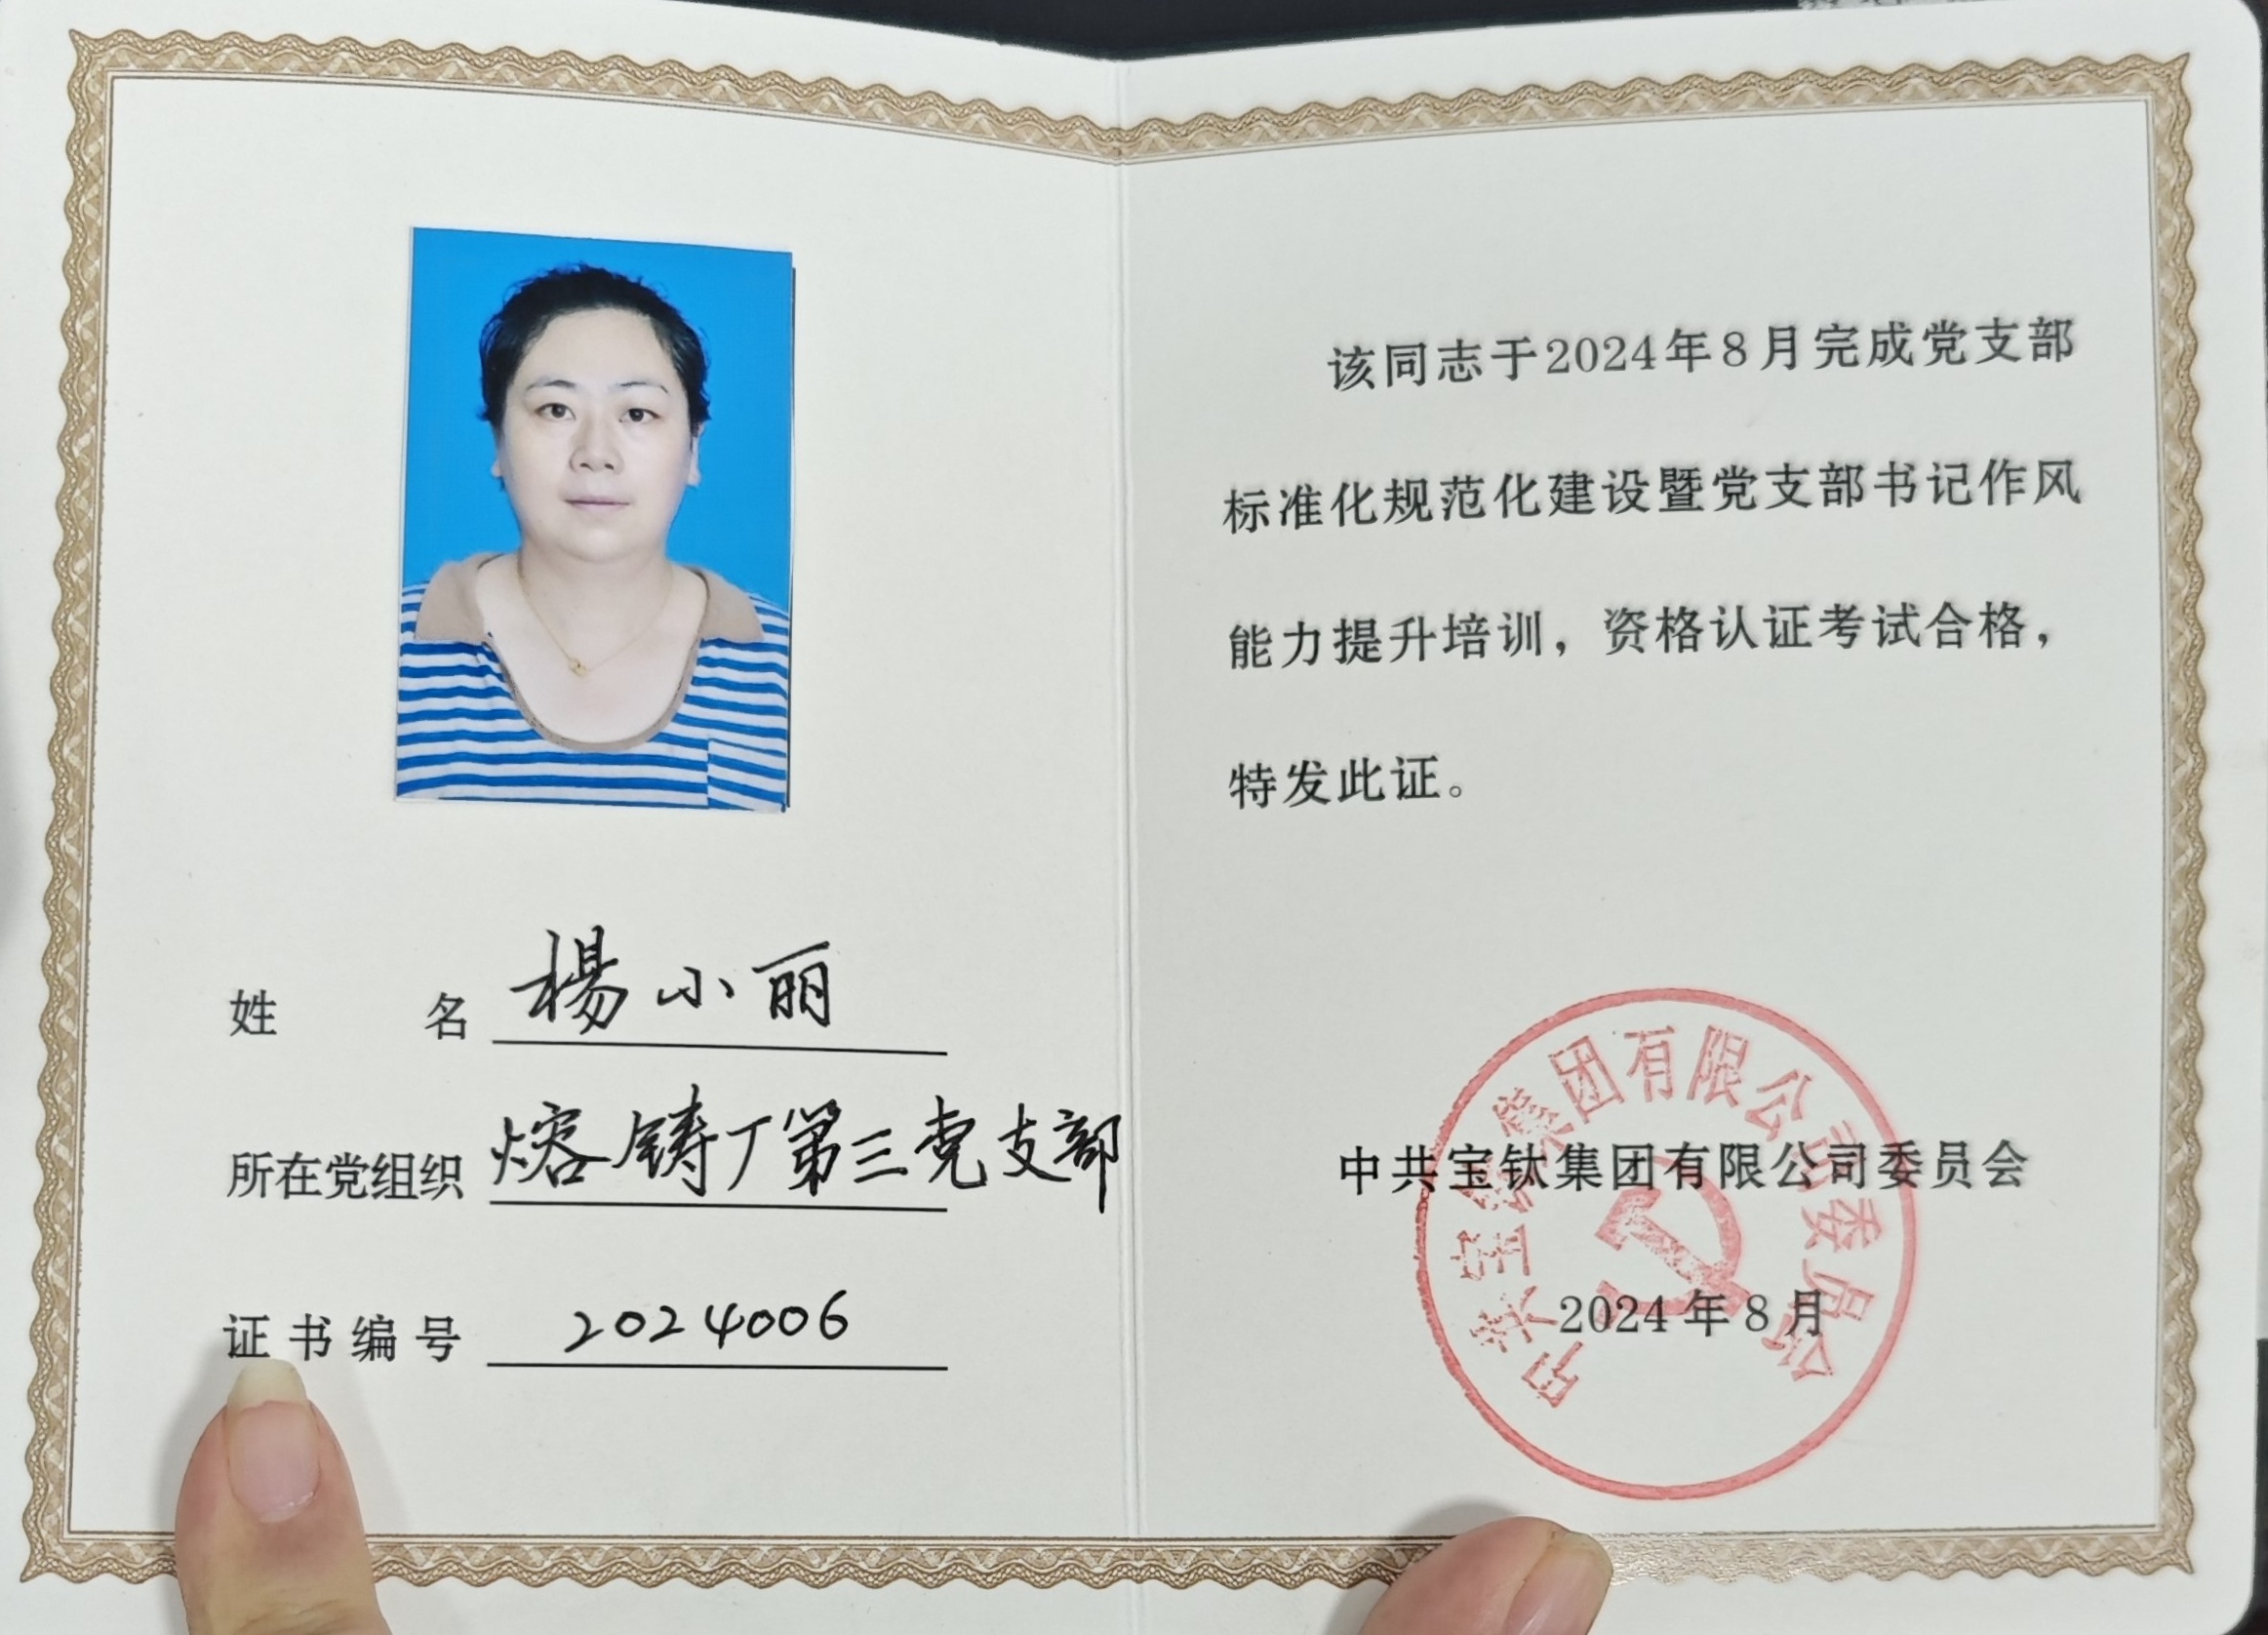 姓名 楊小丽
所在党组织 熔铸厂第三党支部
证书编号 2024006
该同志于2024年8月完成党支部
标准化规范化建设暨党支部书记作风
能力提升培训，资格认证考试合格，
特发此证。
中共宝钛集团有限公司委员会
2024年8月
中共宝钛集团有限公司委员会